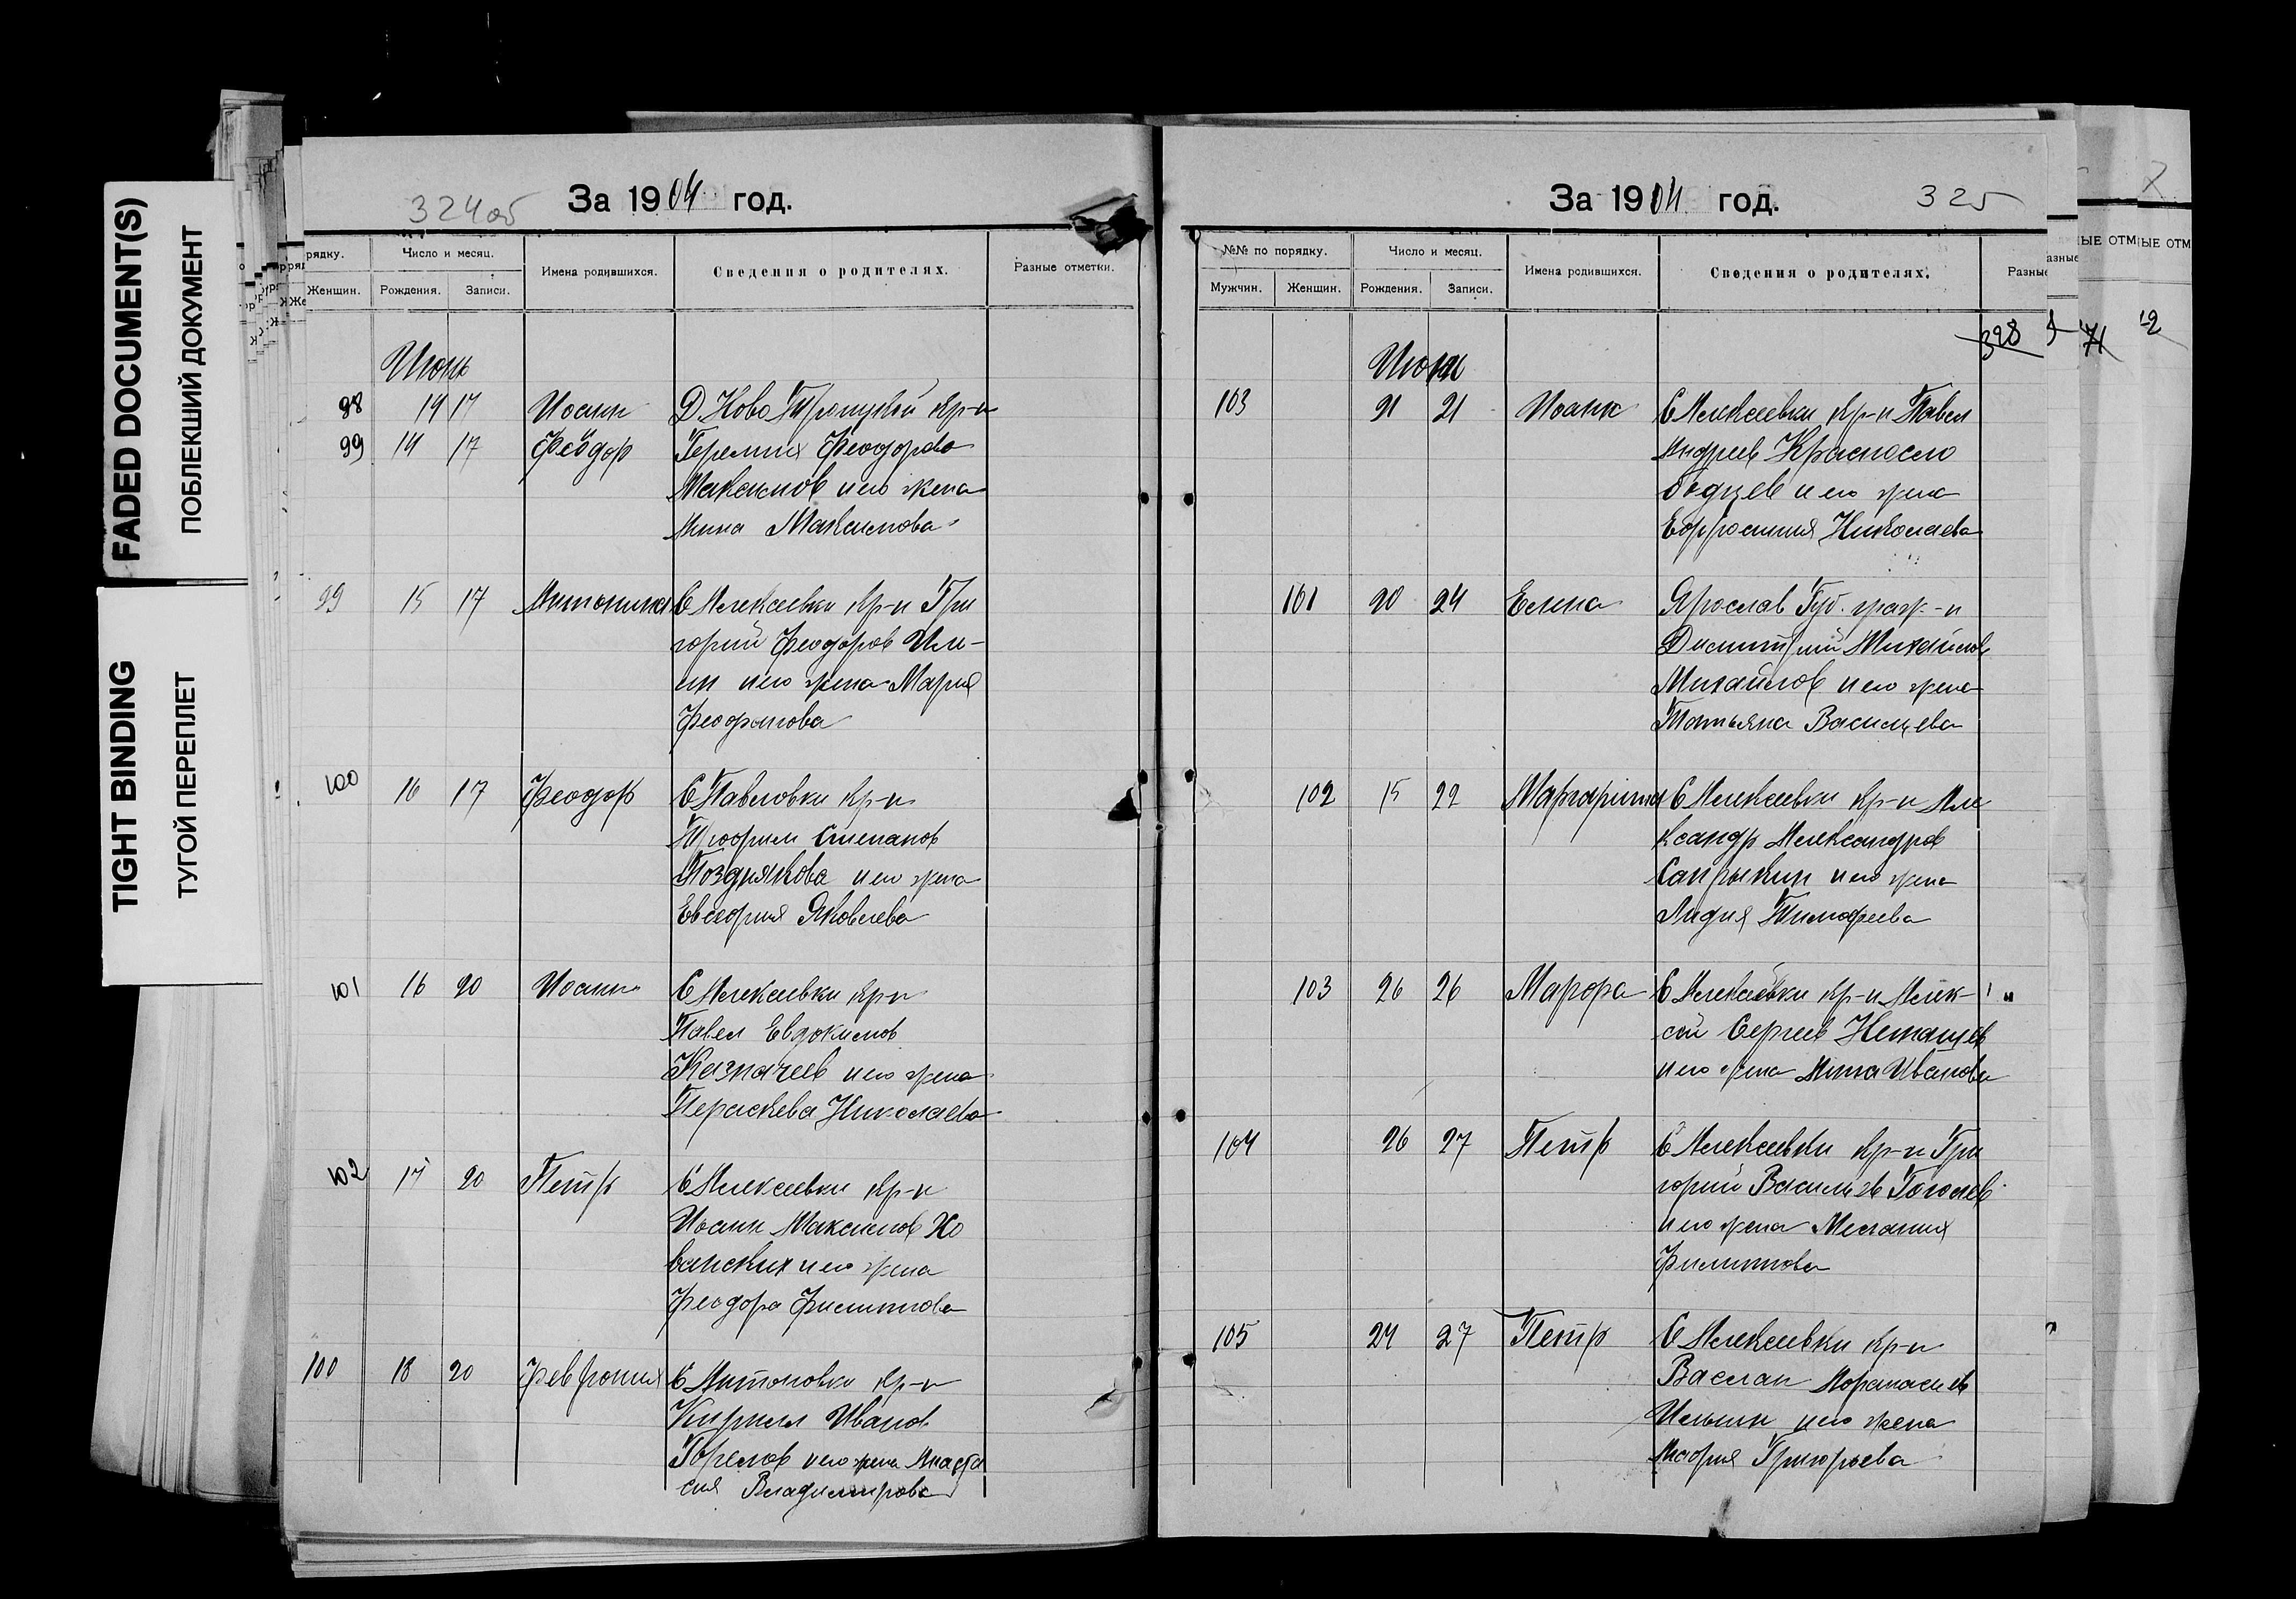 FADED DOCUMENT(S)
ПОБЛЕКШИЙ ДОКУМЕНТ
TIGHT BINDING
ТУГОЙ ПЕРЕПЛЕТ
324об
За 1904 год.
рядку. Число и месяц. Имена родившихся. Сведения о родителях. Разные отметки.
Женщин. Рождения. Записи.
Июнь
98 14 17 Иоанн Д. Ново Троицкой кр-н
99 14 17 Феодор Иеремия Феодоров
Максимов и его жена
Анна Максимова
99 15 17 Антонина С Алексеевки кр-н Гри
горий Феодоров Иль-
ин и его жена Мария
Феофанова
100 16 17 Феодор С Павловки кр-н
Трофим Степанов
Позднякова и его жена
Евдокия Яковлева
101 16 20 Иоанн С Алексеевки кр-н
Павел Евдокимов
Казначеев и его жена
Параскева Николаева
102 17 20 Петр С Алексеевки кр-н
Иоанн Максимов Хо
ванских и его жена
Феодора Филиппова
100 18 20 Феврония С Антоновки кр-н
Кирилл Иванов
Горелов и его жена Анаста
сия Владимирова
За 1904 год.
325
№№ по порядку. Число и месяц. Имена родившихся. Сведения о родителях. Разные
Мужчин. Женщин. Рождения. Записи.
328
Июнь
103 21 21 Иоанн С Алексеевки кр-н Павел
Андреев Краснослo
бодцев и его жена
Евфросиния Николаева
101 20 24 Елена Ярослав Губ. граж-н
Димитрий Михайлов
Михайлов и его жена
Татьяна Васильева
102 15 22 Маргарита С Алексеевки кр-н Але
ксандр Александров
Сапрыкин и его жена
Лидия Тимофеева
103 26 26 Марфа С Алексеевки кр-н Алек-
сей Сергеев
и его жена Анна Иванова
104 26 27 Петр С Алексеевки кр-н Гри
горий Васильев Гоголев
и его жена Мелания
Филиппова
105 24 27 Петр С Алексеевки кр-н
Афанасьев
Ильин и его жена
Мария Григорьева